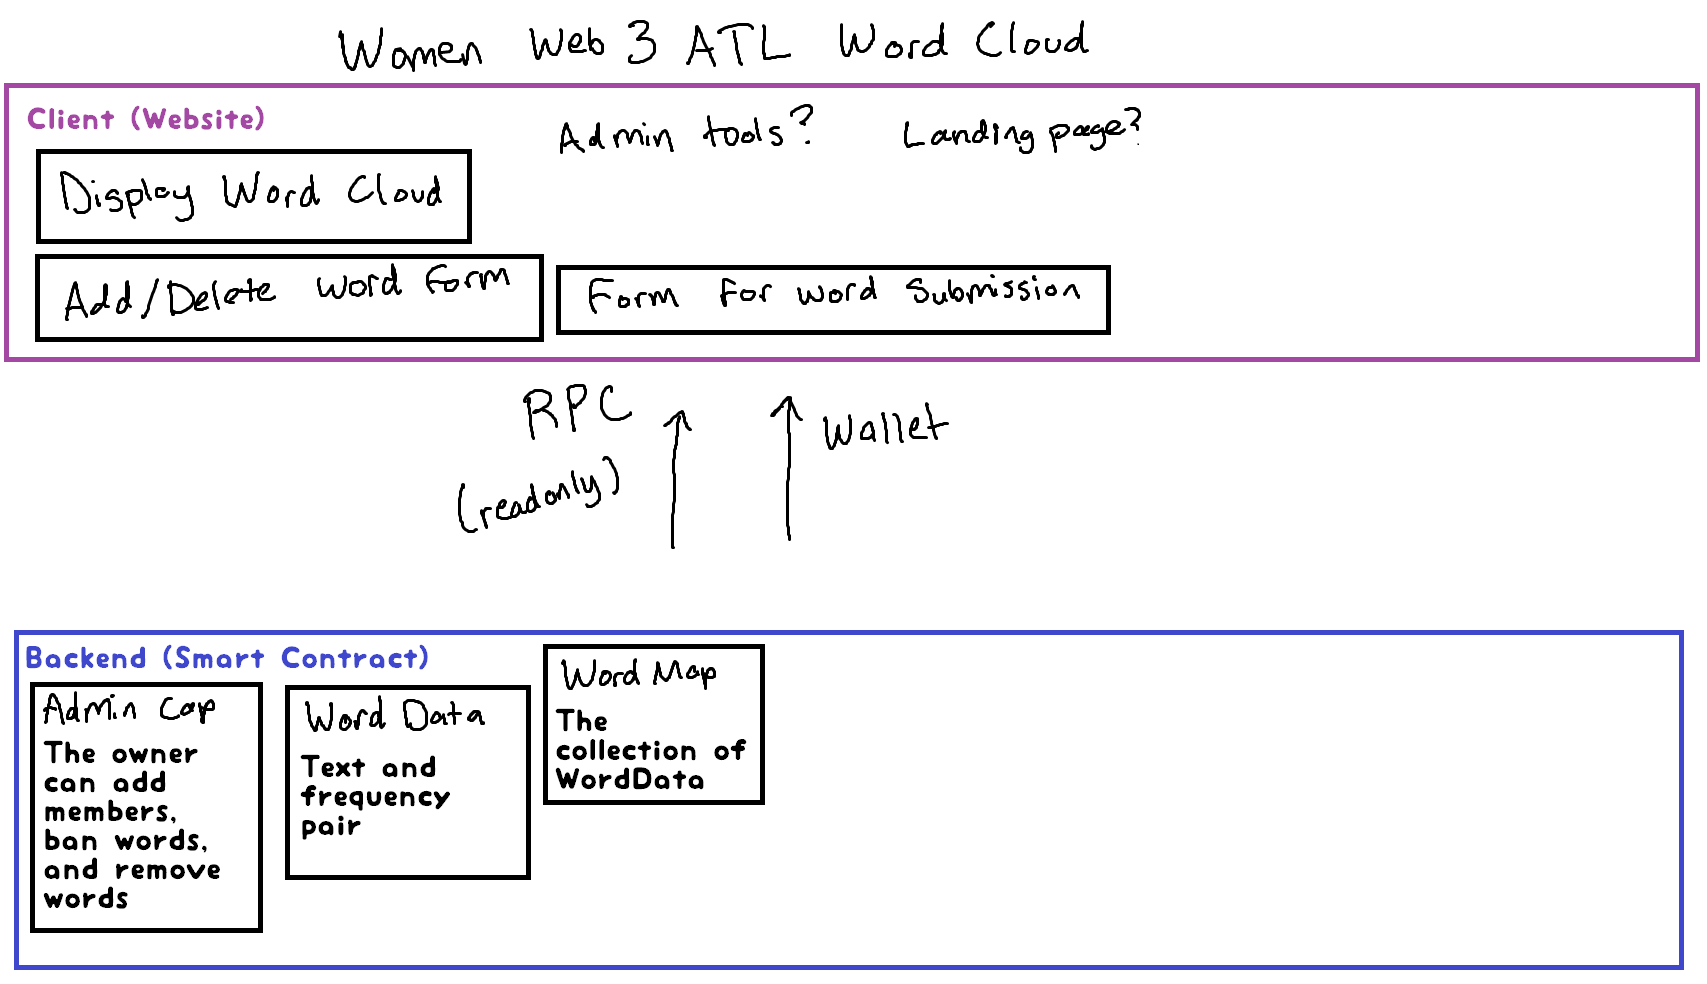 Women Web 3 ATL Word Cloud
Client (Website)
Admin tools?
Landing page?
Display Word Cloud
Add/Delete Word Form
Form For Word Submission
RPC
(readonly)
Wallet
Backend (Smart Contract)
Admin Cap
The owner
can add
members,
ban words,
and remove
words
Word Data
Text and
frequency
pair
Word Map
The
collection of
WordData